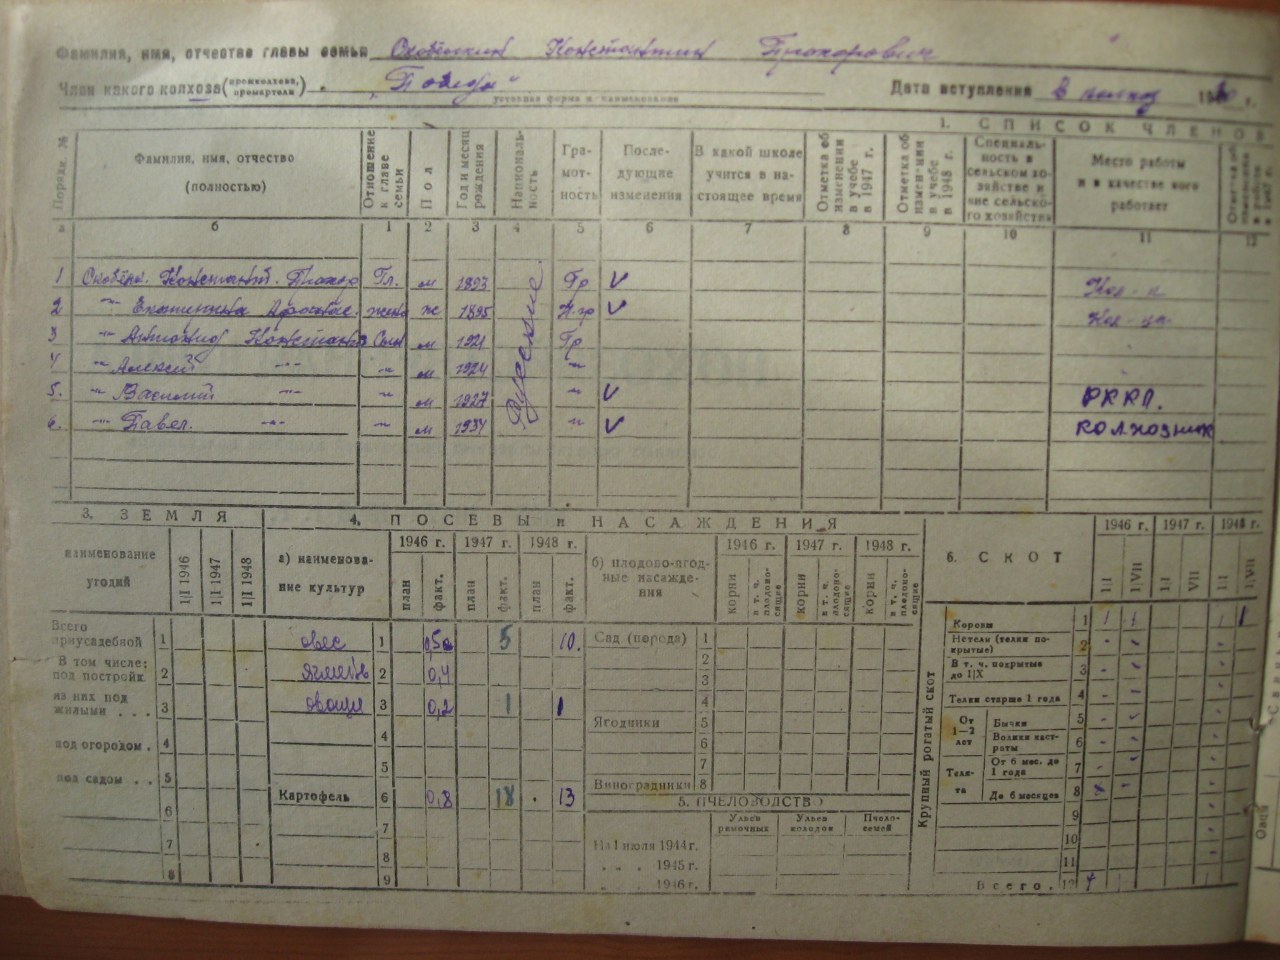 Фамилия, имя, отчество главы семьи Константин Прохорович
Член какого колхоза (промколхоза, промартели) „Победа"
уставная форма и наименование
Дата вступления г.
1. СПИСОК ЧЛЕНОВ
Порядк. №
Фамилия, имя, отчество (полностью)
Отношение к главе семьи
Пол
Год и месяц рождения
Национальность
Грамотность
Последующие изменения
В какой школе учится в настоящее время
Отметка об изменении в учебе в 1947 г.
Отметка об изменении в учебе в 1948 г.
Специальность в сельском хозяйстве и вне сельского хозяйства
Место работы и в качестве кого работает
а б 1 2 3 4 5 6 7 8 9 10 11 12
1 Гл. м 1893 Русские Гр V Кол-к
2 -"- Екатерина жена ж 1895 Н.гр V Кол-ца
3 -"- Сын м 1921 Гр
4 -"- Алексей -"- -"- м 1924 -"-
5. -"- Василий -"- -"- м 1927 -"- V РККА.
6. -"- Павел. -"- -"- м 1934 -"- V колхозник
3. ЗЕМЛЯ
наименование угодий
1|I 1946 1|I 1947 1|I 1948
Всего приусадебной 1
В том числе: под постройк. 2
из них под жилыми . . . 3
под огородом . 4
под садом . . 5
6
7
8
4. ПОСЕВЫ и НАСАЖДЕНИЯ
а) наименование культур
1946 г. 1947 г. 1948 г.
план факт. план факт. план факт.
овес 1 5 10.
ячмень 2 0,4
овощи 3 0,2 1 1
4
5
Картофель 6 0,8 18 13
7
8
9
б) плодово-ягодные насаждения
1946 г. 1947 г. 1948 г.
корни в т. ч. плодоносящие корни в т. ч. плодоносящие корни в т. ч. плодоносящие
Сад (порода) 1
2
3
4
Ягодники 5
6
7
Виноградники 8
5. ПЧЕЛОВОДСТВО
Ульев рамочных Ульев колодок Пчелосемей
На 1 июля 1944 г.
„ „ „ 1945 г.
„ „ „ 1946 г.
6. СКОТ
1946 г. 1947 г. 1948 г.
1|I 1|VII 1|I VII 1|I 1|VII
Крупный рогатый скот
Коровы 1 1 1 1
Нетели (телки покрытые) 2
В т. ч. покрытые до 1|X 3
Телки старше 1 года 4
От 1—2 лет Бычки 5
Волики кастраты 6
Телята От 6 мес. до 1 года 7
До 6 месяцев 8
9
10
11
Всего. 12
Овцы